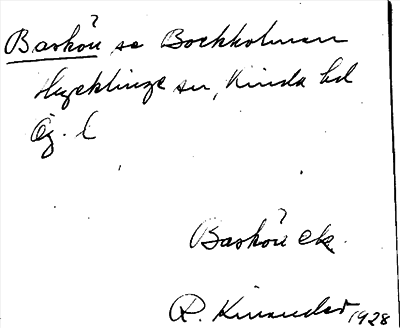 Baskön, se Bockholmen
Hycklinge sn, Kinda hd
Ög. l
Baskön ek.
R. Kinander 1928